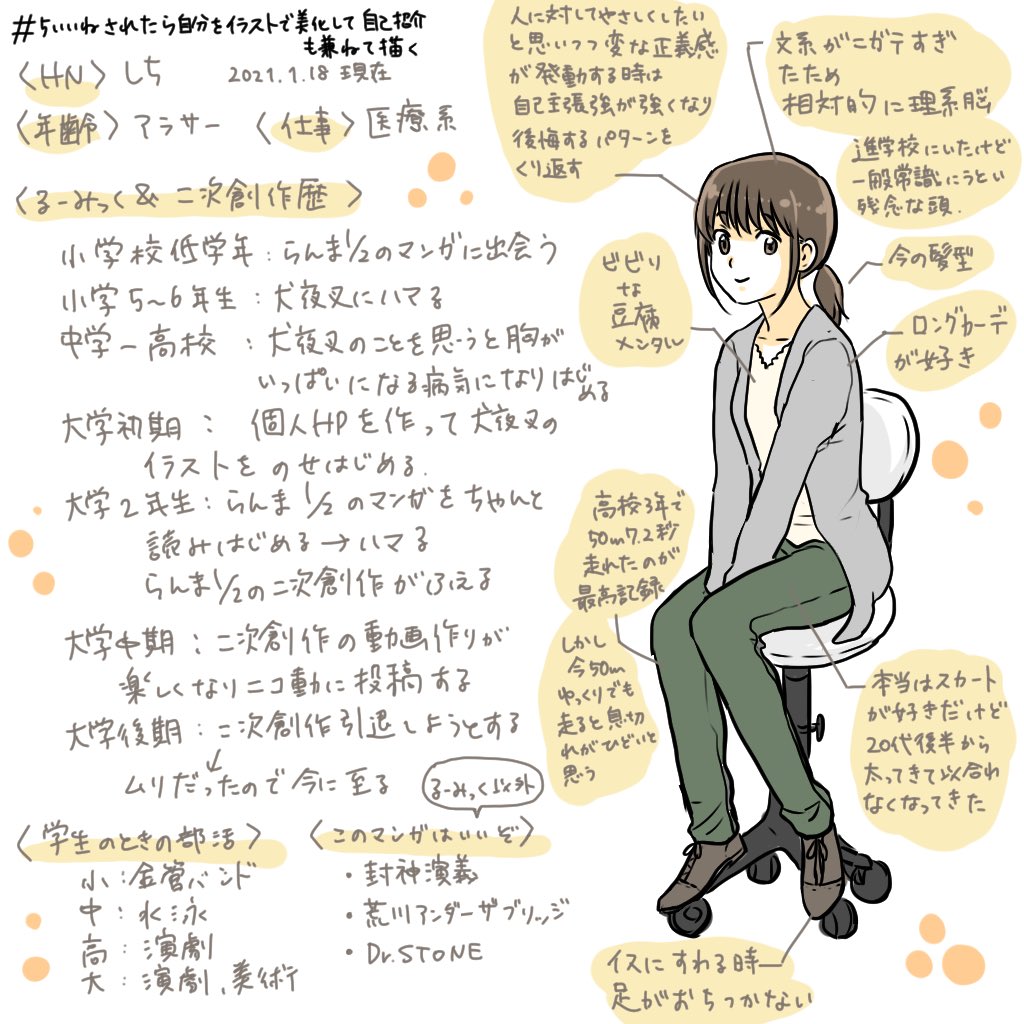 #5いいねされたら自分をイラストで美化して自己紹介
も兼ねて描く
〈HN〉しち 2021.1.18現在
〈年齢〉アラサー 〈仕事〉医療系
〈るーみっく&二次創作歴〉
小学校低学年:らんま1/2のマンガに出会う
小学5~6年生:犬夜叉にハマる
中学ー高校:犬夜叉のことを思うと胸が
いっぱいになる病気になりはじめる
大学初期:個人HPを作って犬夜叉の
イラストをのせはじめる.
大学2年生:らんま1/2のマンガをちゃんと
読みはじめる→ハマる
らんま1/2の二次創作がふえる
大学中期:二次創作の動画作りが
楽しくなりニコ動に投稿する
大学後期:二次創作引退しようとする
↓
ムリだったので今に至る
〈学生のときの部活〉
小:金管バンド
中:水泳
高:演劇
大:演劇、美術
るーみっく以外
〈このマンガはいいぞ〉
・封神演義
・荒川アンダーザブリッジ
・Dr.STONE
人に対してやさしくしたい
と思いつつ変な正義感
が発動する時は
自己主張強が強くなり
後悔するパターンを
くり返す
文系がニガテすぎ
たため
相対的に理系脳
進学校にいたけど
一般常識にうとい
残念な頭.
今の髪型
ロングカーデ
が好き
ビビリ
な
豆腐
メンタル
高校3年で
50m7.2秒
走れたのが
最高記録
しかし
今50m
ゆっくりでも
走ると息切
れがひどいと
思う
本当はスカート
が好きだけど
20代後半から
太ってきて似合わ
なくなってきた
イスにすわる時
足がおちつかない